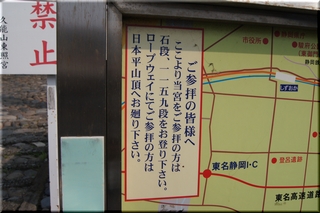 ご参拝の皆様へ
ここより当宮をご参拝の方は
石段、一一五九段をお登り下さい。
ロープウェイにてご参拝の方は
日本平山頂へお廻り下さい。
禁止
久能山東照宮
市役所
しずおか
登呂遺跡
東名静岡I・C
東名高速道